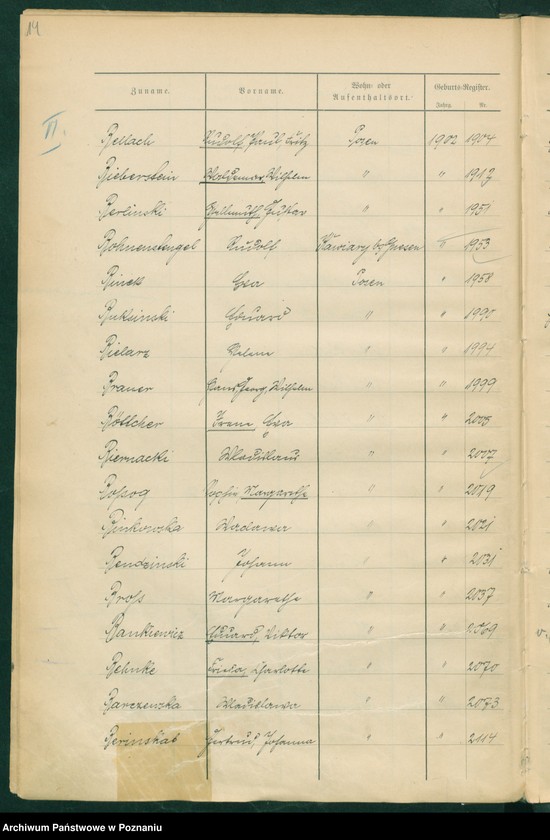 14
Zuname. Vorname. Wohn- oder Aufenthaltsort. Geburts-Register.
Jahrg. Nr.
II.
Bellach Rudolf Paul Fritz Posen 1902 1904
Bieberstein Waldemar, Wilhelm " " 1913
Berlinski Hellmuth Gustav " " 1951
Bohnenstengel Rudolf Kawiary bz Gnesen " 1953
Binek Eva Posen " 1958
Buksinski Eduard " " 1990
Bielarz Helene " " 1994
Brauer Hans Georg, Wilhelm " " 1999
Böttcher Irene, Eva " " 2005
Biernacki Wladislaus " " 2007
Sophie Margarethe " " 2019
Binkowska Wadawa " " 2021
Bendzinski Johann " " 2031
Bross Margarethe " " 2037
Bankiewicz Eduard, Viktor " " 2069
Behnke Frieda, Charlotte " " 2070
Barczewska Wladislawa " " 2073
Gertrud, Johanna " " 2114
Archiwum Państwowe w Poznaniu